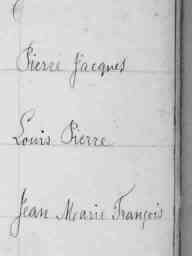 Pierre Jacques
Louis Pierre
Jean Marie François